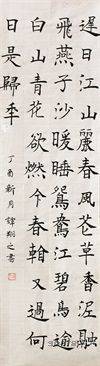 遲日江山麗春風花草香泥融
飛燕子沙暖睡鴛鴦江碧鳥逾
白山青花欲燃今春看又過何
日是歸年
丁酉新月
之書